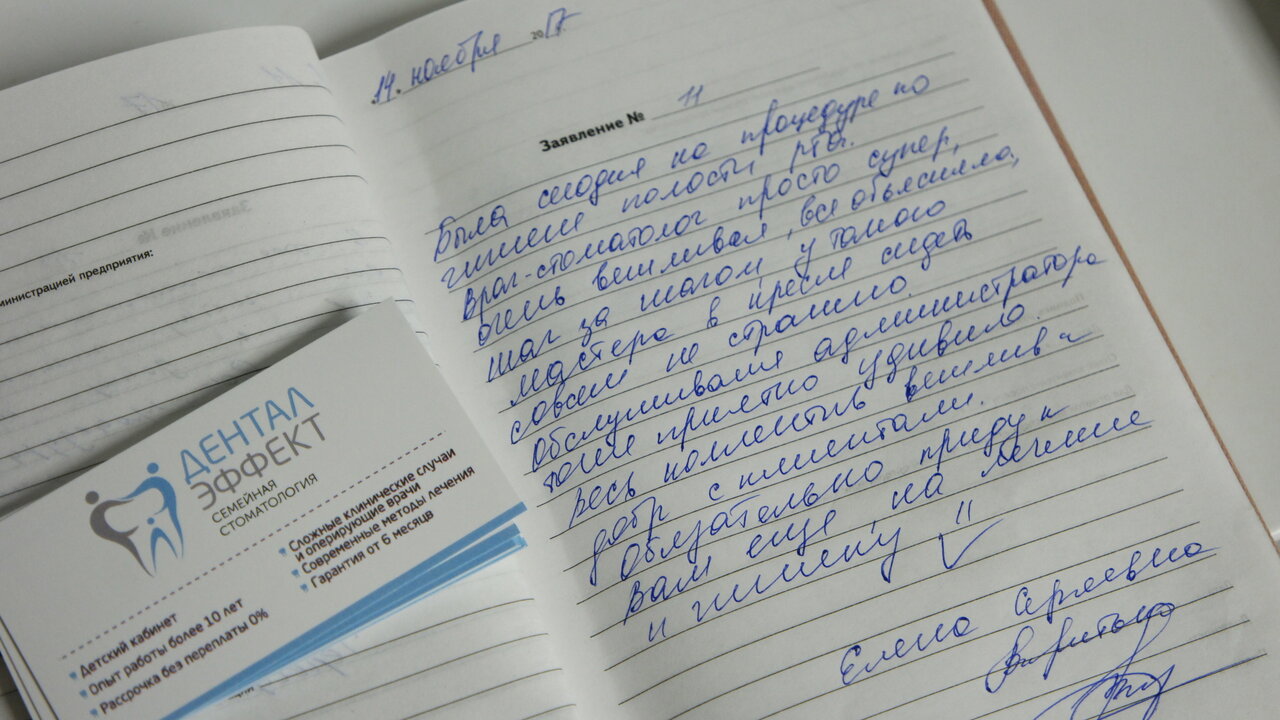 министрацией предприятия:
ДЕНТАЛ
ЭФФЕКТ
СЕМЕЙНАЯ
СТОМАТОЛОГИЯ
Сложные клинические случаи
и оперирующие врачи
Современные методы лечения
Гарантия от 6 месяцв
Детский кабинет
Опыт работы более 10 лет
Рассрочка без переплаты 0%
14. ноября 2017
Заявление № 11
Была сегодня на процедуре по
гигиене полости рта.
Врач-стоматолог просто супер,
очень вежливая, все объяснила,
шаг за шагом, у такого
мастера в кресле сидеть
совсем не страшно.
Обслуживания администратора
тоже приятно удивило.
весь коллектив вежлив и
добр с клиентами.
Обязательно приду к
вам еще на лечение
и гигиену!!
Елена Сергеевна